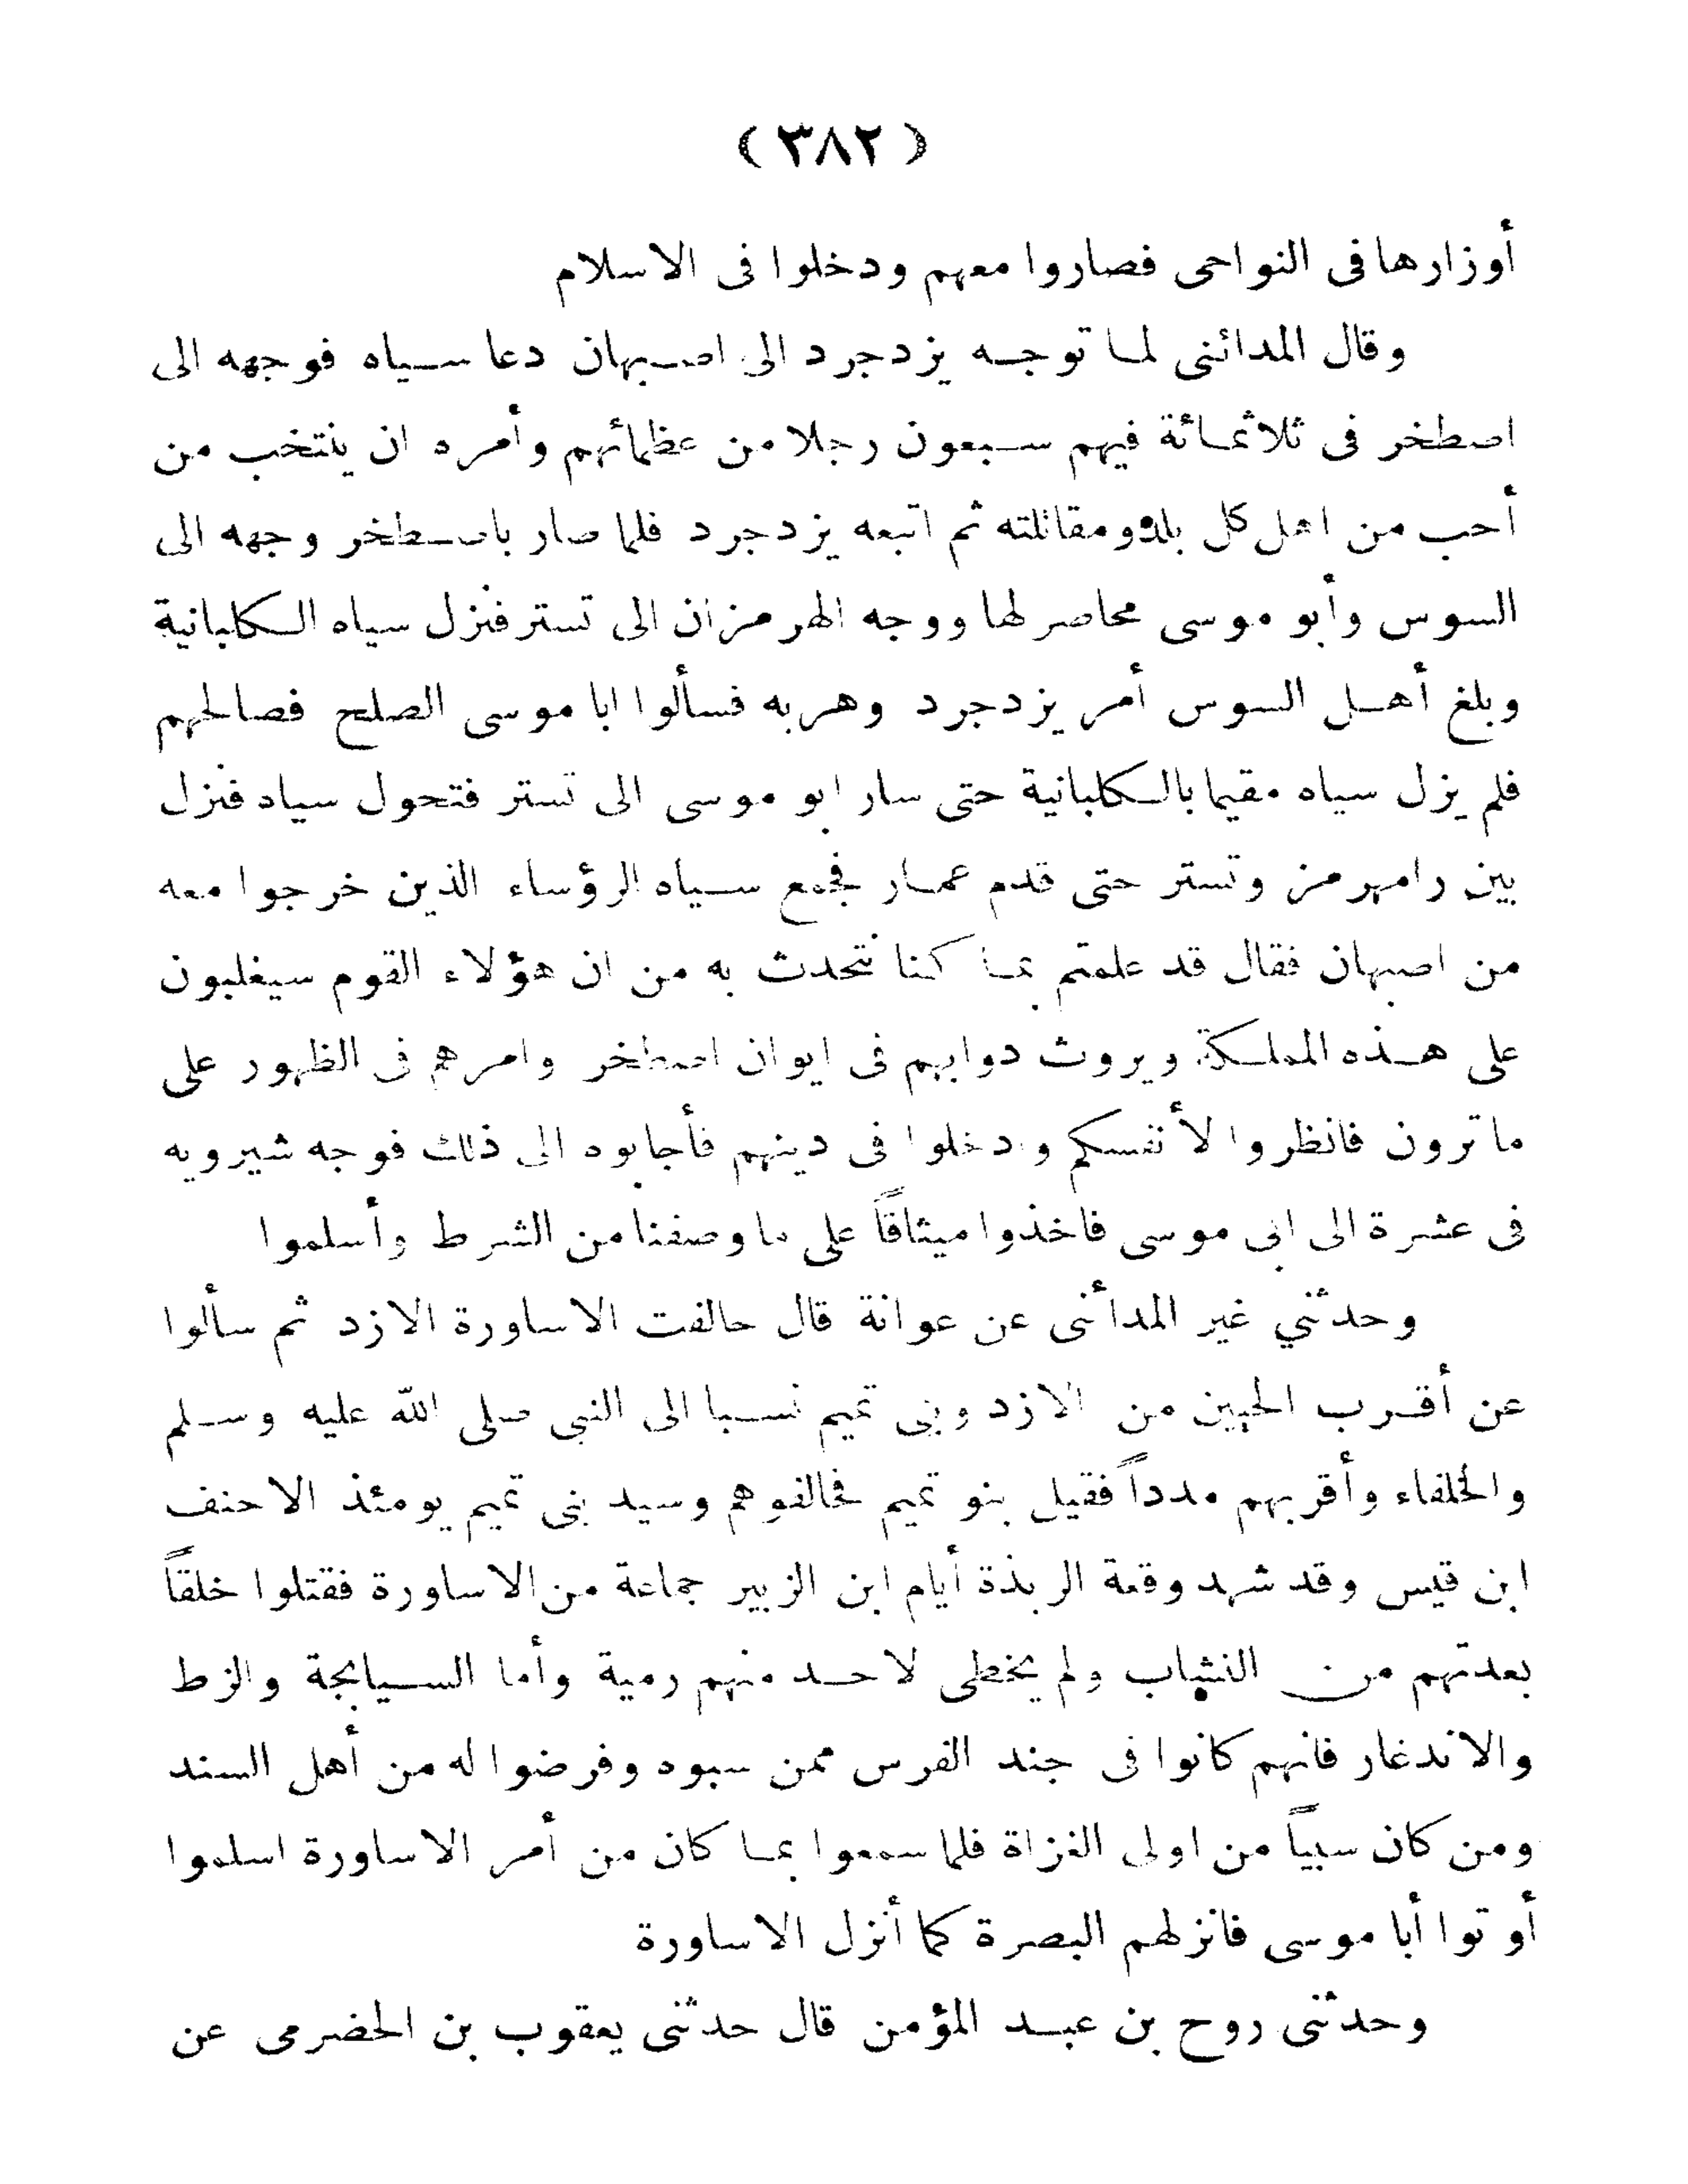 ( ٣٨٢ )
أوزارها فى النواحى فصاروا معهم ودخلوا فى الاسلام
وقال المدائنى لما توجه يزدجرد الى اصبهان دعا سياه فوجهه الى
اصطخر فى ثلاثمائة فيهم سبعون رجلا من عظمائهم وأمره ان ينتخب من
أحب من اهل كل بلد ومقاتلته ثم اتبعه يزدجرد فلما صار باصطخر وجهه الى
السوس وأبو موسى محاصر لها ووجه الهرمزان الى تستر فنزل سياه الكلبانية
وبلغ أهل السوس أمر يزدجرد وهربه فسألوا ابا موسى الصلح فصالحهم
فلم يزل سياه مقيما بالكلبانية حتى سار ابو موسى الى تستر فتحول سياه فنزل
بين رامهرمز وتستر حتى قدم عمار فجمع سياه الرؤساء الذين خرجوا معه
من اصبهان فقال قد علمتم بما كنا نتحدث به من ان هؤلاء القوم سيغلبون
على هذه المملكة ويروث دوابهم فى ايوان اصطخر وامرهم فى الظهور على
ما ترون فانظروا لأنفسكم وادخلوا فى دينهم فأجابوه الى ذلك فوجه شيرويه
فى عشرة الى ابى موسى فاخذوا ميثاقاً على ما وصفنا من الشرط وأسلموا
وحدثني غير المدائنى عن عوانة قال حالفت الاساورة الازد ثم سألوا
عن أقرب الحيين من الازد وبنى تميم نسبا الى النبى صلى الله عليه وسلم
والخلفاء وأقربهم مدداً فقيل بنو تميم فحالفوهم وسيد بنى تميم يومئذ الاحنف
ابن قيس وقد شهد وقعة الربذة أيام ابن الزبير جماعة من الاساورة فقتلوا خلقاً
بعدتهم من النشاب ولم يخطى لاحد منهم رمية وأما السيابجة والزط
والاندغار فانهم كانوا فى جند الفرس ممن سبوه وفرضوا له من أهل السند
ومن كان سبياً من اولى الغزاة فلما سمعوا بما كان من أمر الاساورة اسلموا
أوتوا أبا موسى فانزلهم البصرة كما أنزل الاساورة
وحدثنى روح بن عبد المؤمن قال حدثنى يعقوب بن الحضرمى عن